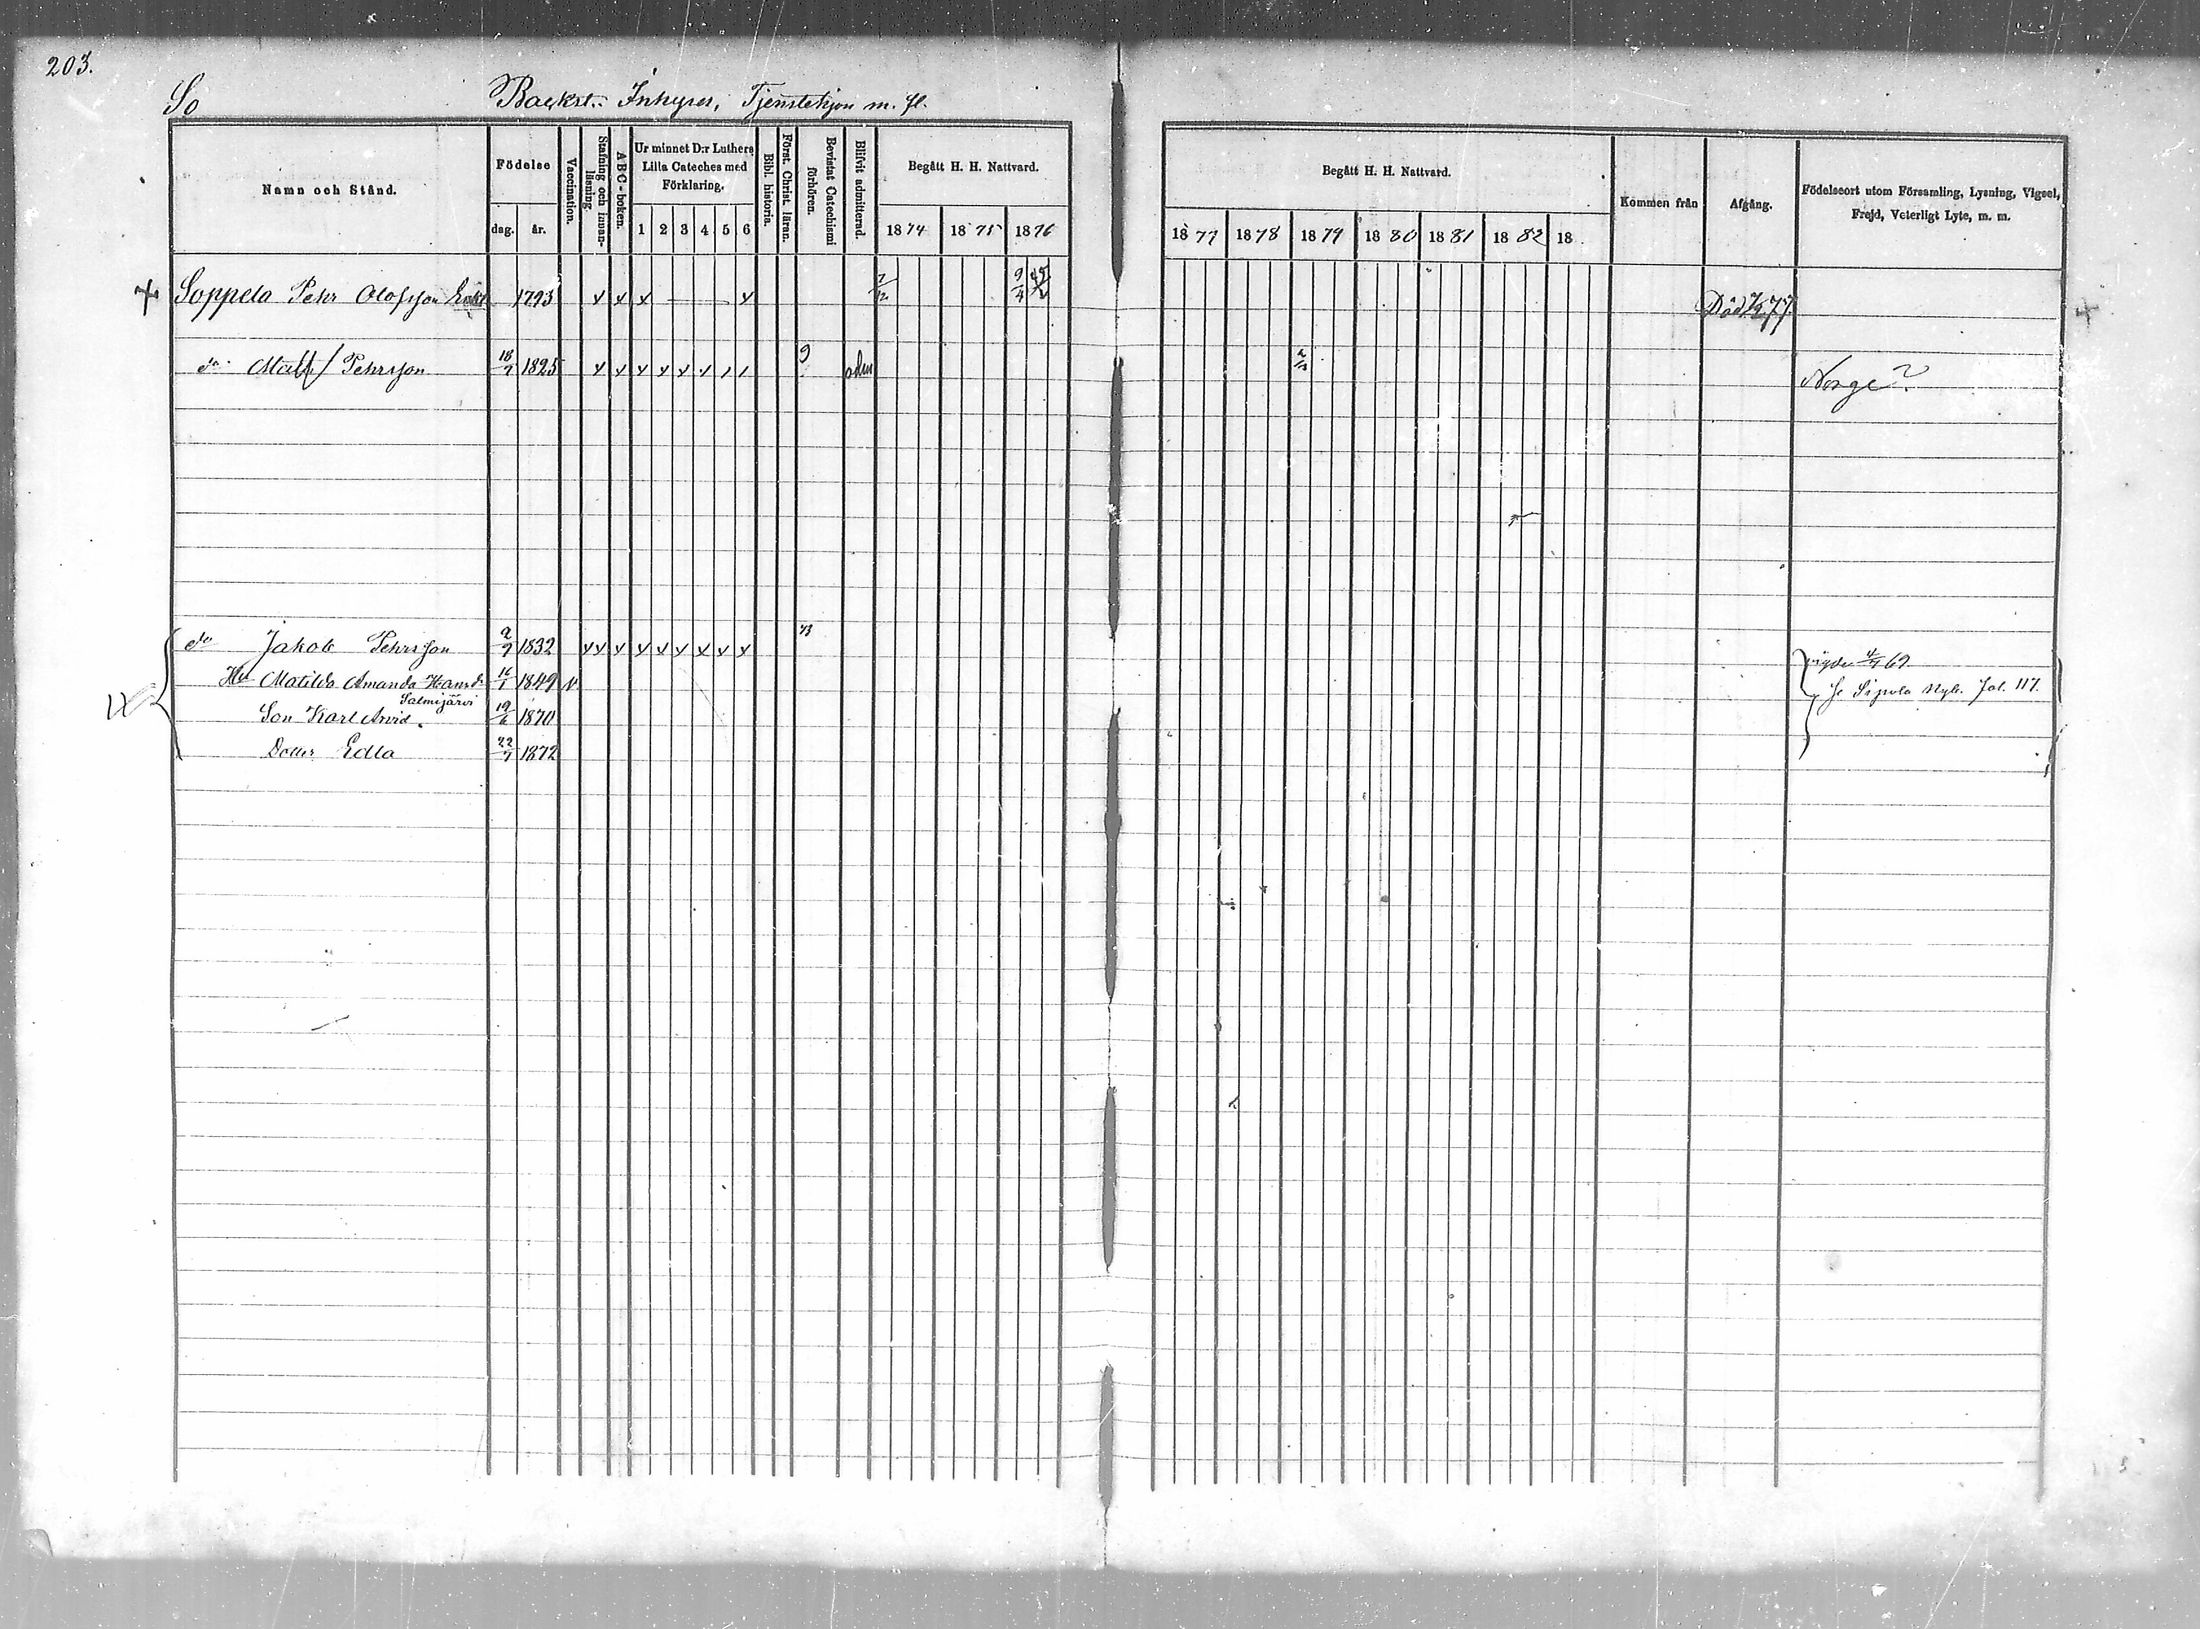 203.
So Backst. Inhyses, Tjenstehjon m. fl.
Namn och Stånd. Födelse Vaccination. Stafning och innanläsning. ABC-boken. Ur minnet D:r Luthers Lilla Cateches med Förklaring. Bibl. historia. Först. Christ. läran. Bevistat Catechismi förhören. Blifvit admitterad. Begått H. H. Nattvard. Begått H. H. Nattvard. Kommen från Afgång. Födelseort utom Församling, Lysning, Vigsel, Frejd, Veterligt Lyte, m. m.
dag. år. 1 2 3 4 5 6 1874 1875 1876 1877 1878 1879 1880 1881 1882 18
Soppela Pehr Olofsson Enkl 1793 x x x x 9/4 Död 77
do Matts Pehrsson 18/7 1825 x x x x x x 9 adm Norge?
do Jakob Pehrsson 2/7 1832 x x x x x x x x x 73 vigde 4/7 69
Hu Matilda Amanda Hansd. 16/1 1849 v. se Sipola Nyb. fol. 117.
Salmijärvi
Son Karl Arvid 19/6 1870
Dotter Edla 22/7 1872